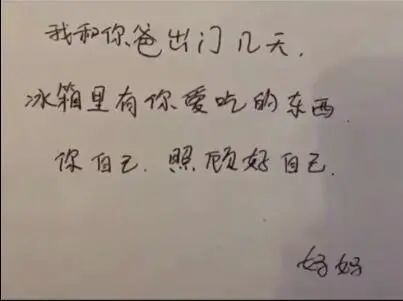 我和你爸出门几天.
冰箱里有你爱吃的东西.
你自己.照顾好自己.
妈妈